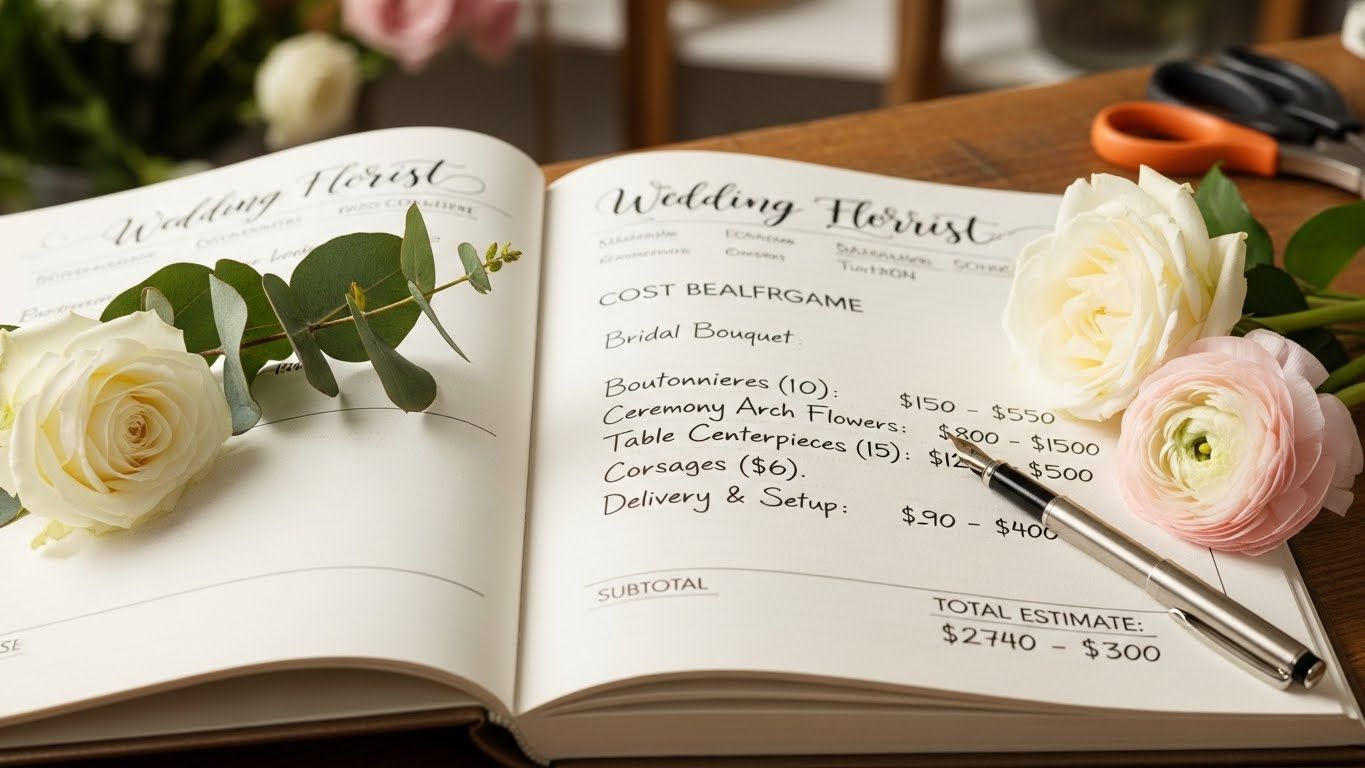 Wedding Florist
Wedding Florrist
COST BEALFRGAME
Bridal Bouquet
Boutonnieres (10): $150 - $550
Ceremony Arch Flowers: $800 - $1500
Table Centerpieces (15): $12 $500
Corsages ($6).
Delivery & Setup: $90 - $400
SUBTOTAL
TOTAL ESTIMATE:
$2740 - $300
SE